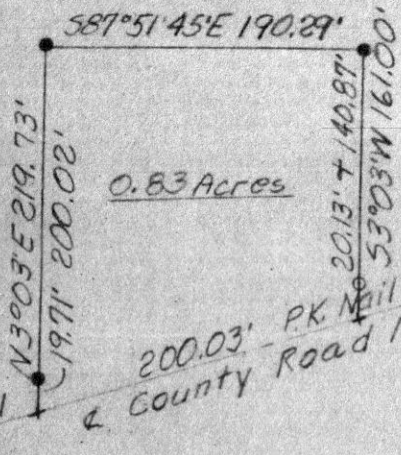 S87°51'45"E 190.29'
N3°03'E 219.73'
19.71' 200.02'
0.83 Acres
20.13' + 140.87'
S3°03'W 161.00'
200.03' - P.K. Nail
℄ County Road